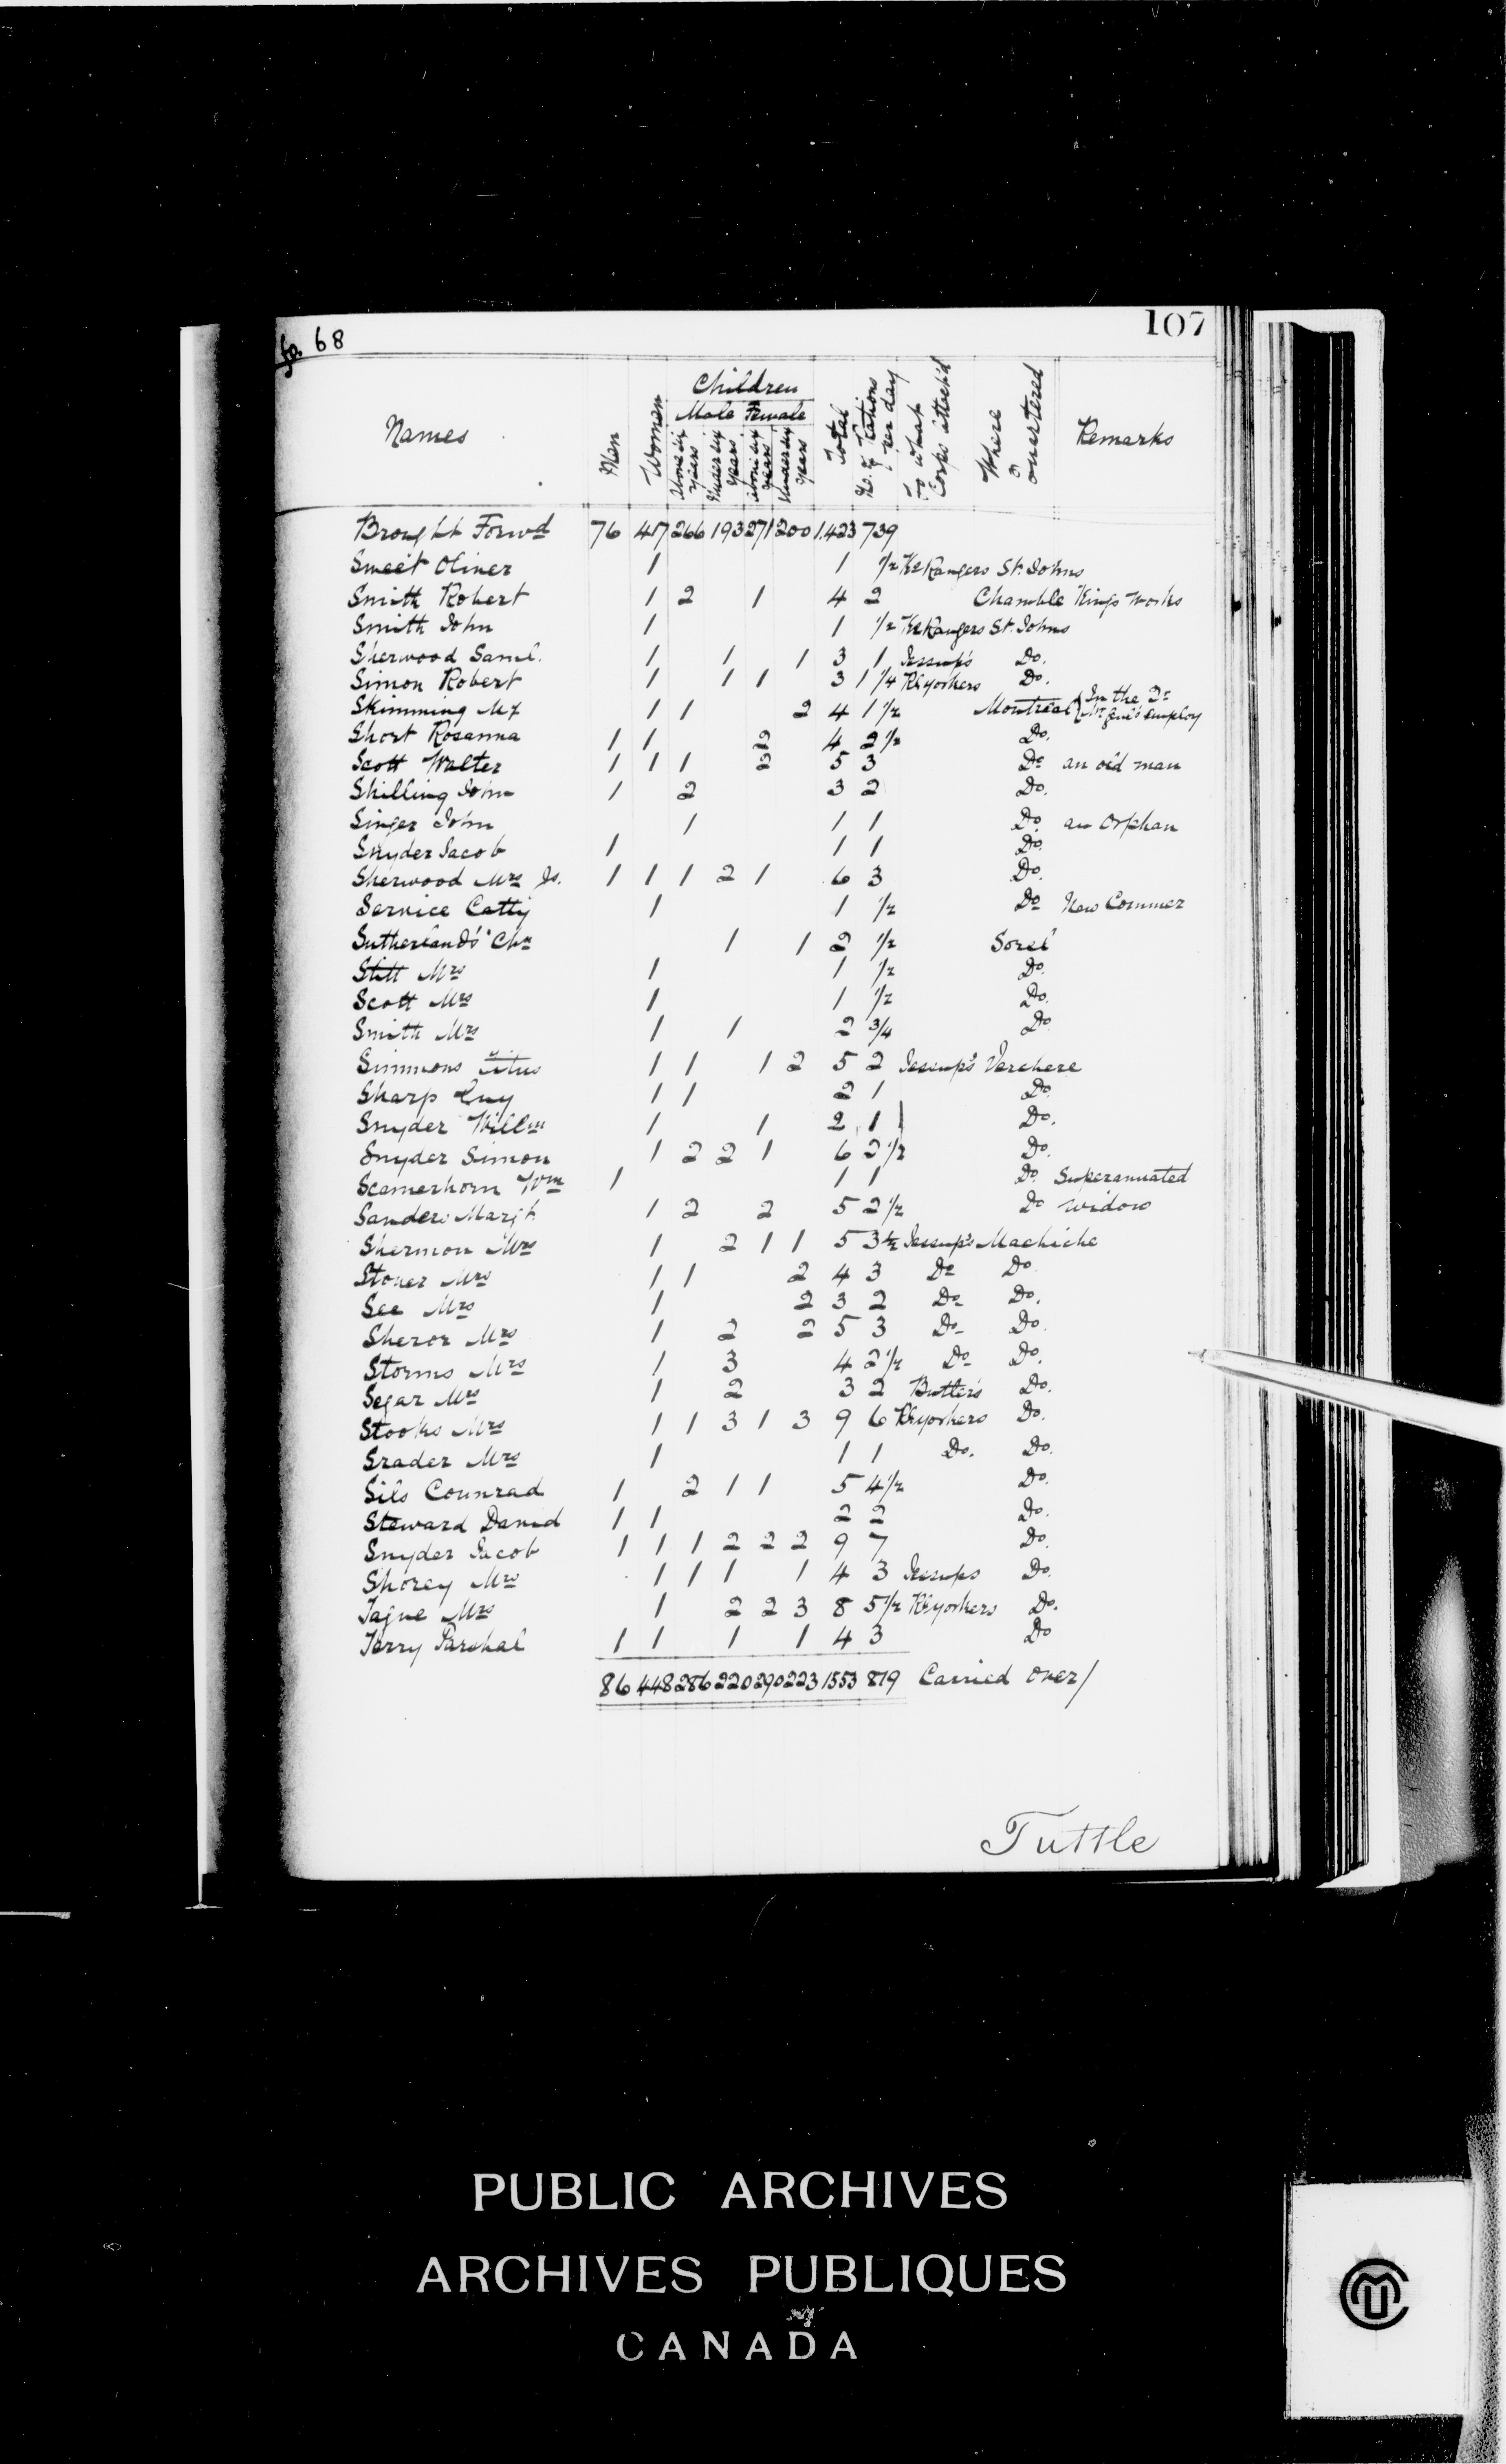 fo. 68
107
Names Men Women Children Male Female Above six years Under six years Above six years Under six years Total No. of Rations per day To what Corps attach'd Where Quartered Remarks
Brought Forwd 76 417 266 193 271 200 1,423 739
Sweet Oliver 1 1 1/2 Ks Rangers St. Johns
Smith Robert 1 2 1 4 2 Chamble Kings Works
Smith John 1 1 1/2 Ks Rangers St. Johns
Sherwood Saml. 1 1 1 3 1 Jessup's Do.
Simon Robert 1 1 1 3 1 1/4 RlYorkers Do.
Skimming Mx 1 1 2 4 1 1/2 Montreal In the Qr Mr Genl's employ
Short Rosanna 1 1 2 4 2 1/2 Do.
Scott Walter 1 1 1 2 5 3 Do an old man
Skilling John 1 2 3 2 Do.
Singer John 1 1 1 Do. an Orphan
Snyder Jacob 1 1 1 Do.
Sherwood Mrs Js. 1 1 1 2 1 6 3 Do.
Service Catty 1 1 1/2 Do New Commer
Sutherland's Chn 1 1 2 1/2 Sorel
Stitt Mrs 1 1 1/2 Do.
Scott Mrs 1 1 1/2 Do.
Smith Mrs 1 1 2 3/4 Do
Simmons Titus 1 1 1 2 5 2 Jessup's Verchere
Sharp Guy 1 1 2 1 Do.
Snyder Willm 1 1 2 1 Do.
Snyder Simon 1 2 2 1 6 2 1/2 Do.
Scamerhorn Wm 1 1 1 Do. Superanuated
Sanders Margt 1 2 2 5 2 1/2 Do Widow
Shermon Mrs 1 2 1 1 5 3 1/2 Jessup's Machiche
Stoner Mrs 1 1 2 4 3 Do Do.
See Mrs 1 2 3 2 Do Do.
Sheror Mrs 1 2 2 5 3 Do Do.
Storms Mrs 1 3 4 2 1/2 Do Do.
Segar Mrs 1 2 3 2 Butler's Do.
Stooks Mrs 1 1 3 1 3 9 6 RlYorkers Do.
Srader Mrs 1 1 1 Do. Do.
Sils Counrad 1 2 1 1 5 4 1/2 Do.
Steward David 1 1 2 2 Do.
Snyder Jacob 1 1 1 2 2 2 9 7 Do.
Shorey Mrs 1 1 1 1 4 3 Jessups Do.
Tague Mrs 1 2 2 3 8 5 1/2 RlYorkers Do.
Terry Parshal 1 1 1 1 4 3 Do
86 448 286 220 290 223 1553 819 Carried over/
Tuttle
PUBLIC ARCHIVES
ARCHIVES PUBLIQUES
CANADA